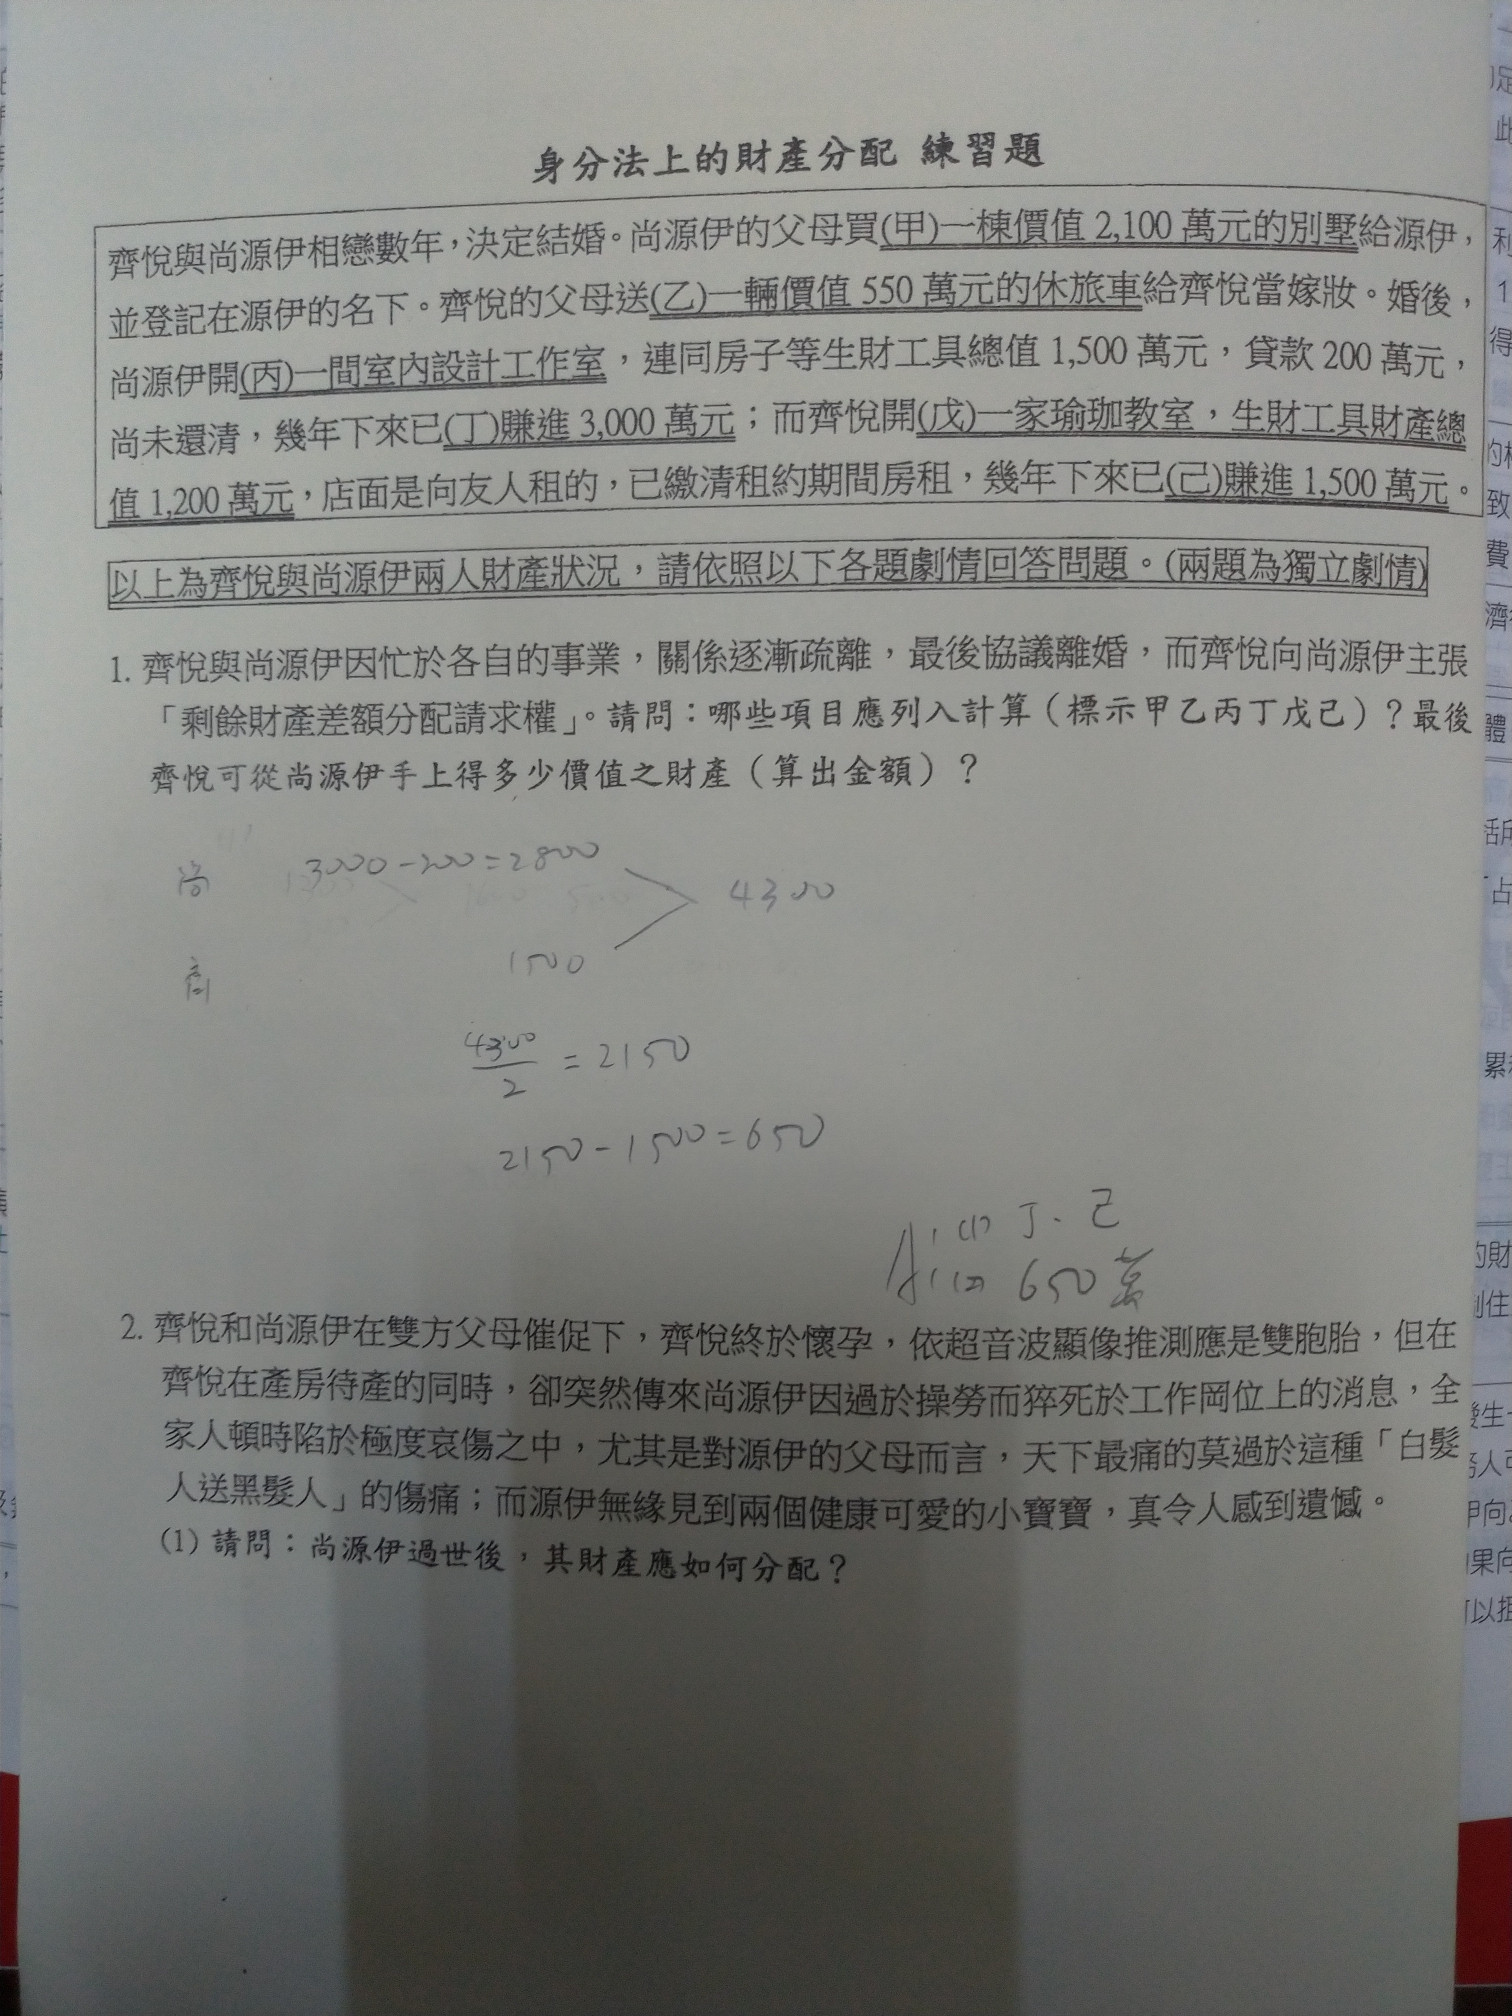 身分法上的財產分配 練習題
齊悅與尚源伊相戀數年，決定結婚。尚源伊的父母買(甲)一棟價值 2,100 萬元的別墅給源伊，
並登記在源伊的名下。齊悅的父母送(乙)一輛價值 550 萬元的休旅車給齊悅當嫁妝。婚後，
尚源伊開(丙)一間室內設計工作室，連同房子等生財工具總值 1,500 萬元，貸款 200 萬元，
尚未還清，幾年下來已(丁)賺進 3,000 萬元；而齊悅開(戊)一家瑜珈教室，生財工具財產總
值 1,200 萬元，店面是向友人租的，已繳清租約期間房租，幾年下來已(己)賺進 1,500 萬元。
以上為齊悅與尚源伊兩人財產狀況，請依照以下各題劇情回答問題。(兩題為獨立劇情)
1. 齊悅與尚源伊因忙於各自的事業，關係逐漸疏離，最後協議離婚，而齊悅向尚源伊主張
「剩餘財產差額分配請求權」。請問：哪些項目應列入計算（標示甲乙丙丁戊己）？最後
齊悅可從尚源伊手上得多少價值之財產（算出金額）？
尚 3000-200=2800
4300
1500
4300/2 = 2150
2150-1500=650
A: (1) 丁、己
(2) 650萬
2. 齊悅和尚源伊在雙方父母催促下，齊悅終於懷孕，依超音波顯像推測應是雙胞胎，但在
齊悅在產房待產的同時，卻突然傳來尚源伊因過於操勞而猝死於工作崗位上的消息，全
家人頓時陷於極度哀傷之中，尤其是對源伊的父母而言，天下最痛的莫過於這種「白髮
人送黑髮人」的傷痛；而源伊無緣見到兩個健康可愛的小寶寶，真令人感到遺憾。
(1) 請問：尚源伊過世後，其財產應如何分配？